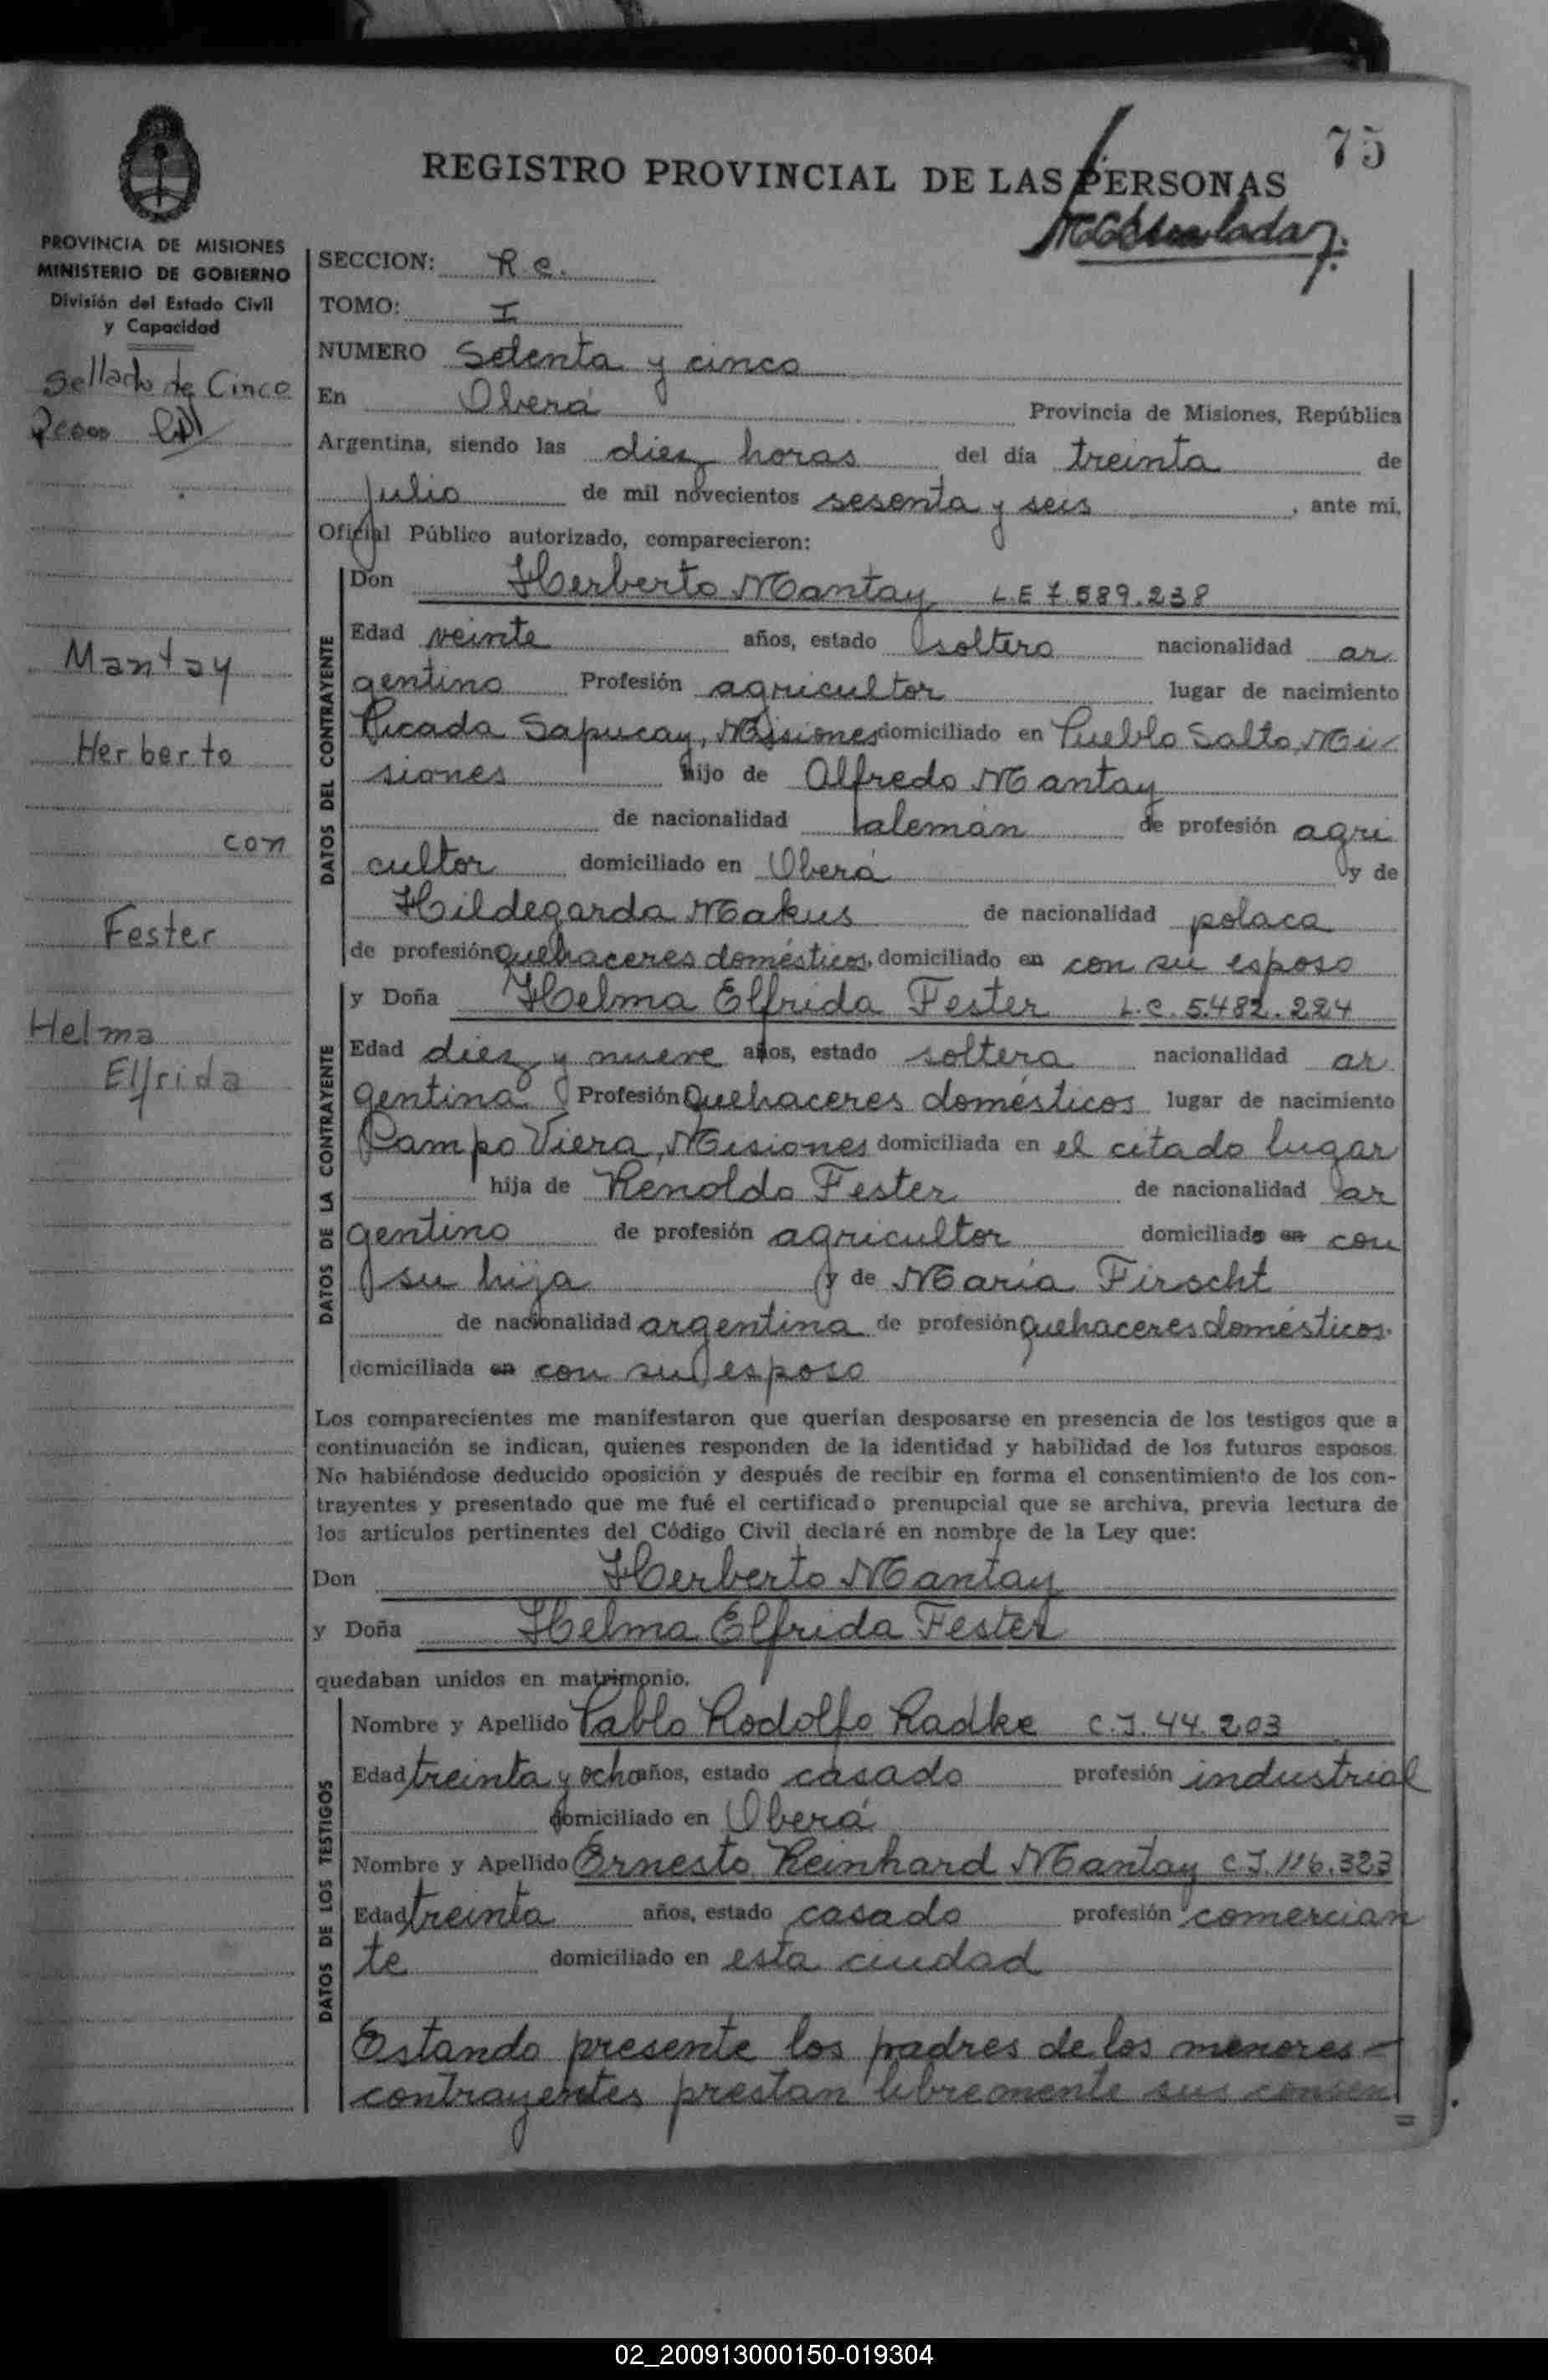 75
REGISTRO PROVINCIAL DE LAS PERSONAS
PROVINCIA DE MISIONES
MINISTERIO DE GOBIERNO
División del Estado Civil
y Capacidad
Sellado de Cinco
Pesos
Mantay
Herberto
con
Fester
Helma
Elfrida
SECCION: R.C.
TOMO: I
NUMERO Setenta y cinco
En Oberá Provincia de Misiones, República
Argentina, siendo las diez horas del día treinta de
julio de mil novecientos sesenta y seis, ante mi,
Oficial Público autorizado, comparecieron:
DATOS DEL CONTRAYENTE
Don Herberto Mantay L.E 7.589.238
Edad veinte años, estado soltero nacionalidad ar
gentino Profesión agricultor lugar de nacimiento
Picada Sapucay, Misiones domiciliado en Pueblo Salto, Mi-
siones hijo de Alfredo Mantay
de nacionalidad alemán de profesión agri
cultor domiciliado en Oberá y de
Hildegarda Makus de nacionalidad polaca
de profesión quehaceres domésticos, domiciliado en con su esposo
DATOS DE LA CONTRAYENTE
y Doña Helma Elfrida Fester L.C. 5.482.224
Edad diez y nueve años, estado soltera nacionalidad ar
gentina Profesión Quehaceres domésticos lugar de nacimiento
Campo Viera, Misiones domiciliada en el citado lugar
hija de Renoldo Fester de nacionalidad ar
gentino de profesión agricultor domiciliado en con
su hija y de María Firscht
de nacionalidad argentina de profesión quehaceres domésticos.
domiciliada en con su esposo
Los comparecientes me manifestaron que querían desposarse en presencia de los testigos que a
continuación se indican, quienes responden de la identidad y habilidad de los futuros esposos.
No habiéndose deducido oposición y después de recibir en forma el consentimiento de los con-
trayentes y presentado que me fué el certificado prenupcial que se archiva, previa lectura de
los artículos pertinentes del Código Civil declaré en nombre de la Ley que:
Don Herberto Mantay
y Doña Helma Elfrida Fester
quedaban unidos en matrimonio.
DATOS DE LOS TESTIGOS
Nombre y Apellido Pablo Rodolfo Radke C.I. 44.203
Edad treinta y ocho años, estado casado profesión industrial
domiciliado en Oberá
Nombre y Apellido Ernesto Reinhard Mantay C.I. 116.323
Edad treinta años, estado casado profesión comercian
te domiciliado en esta ciudad
Estando presente los padres de los menores -
contrayentes prestan libremente sus consen
=
02_200913000150-019304